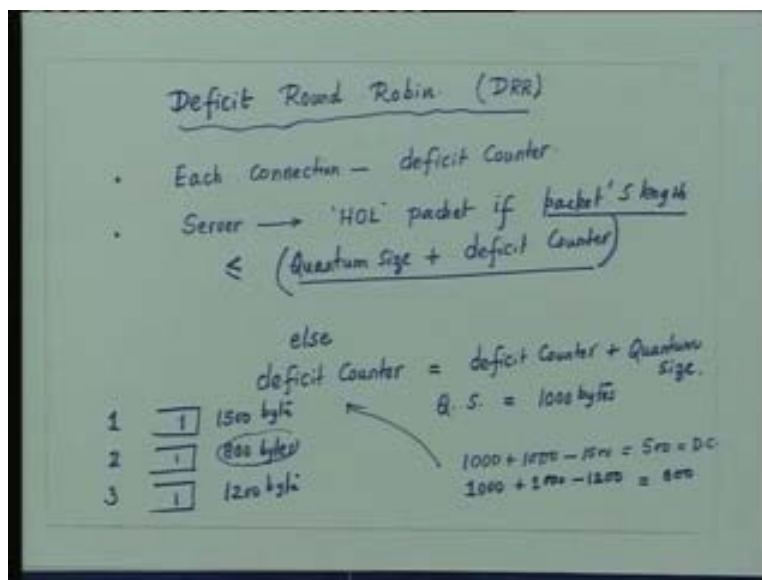 Deficit Round Robin (DRR)
• Each Connection — deficit Counter.
• Server → 'HOL' packet if packet's length
≤ (Quantum Size + deficit Counter)
else
deficit Counter = deficit Counter + Quantum Size.
Q. S. = 1000 bytes
1 1 1500 byte
2 1 800 bytes
3 1 1200 byte
1000 + 1000 – 1500 = 500 = D.C.
1000 + 1000 – 1200 = 800